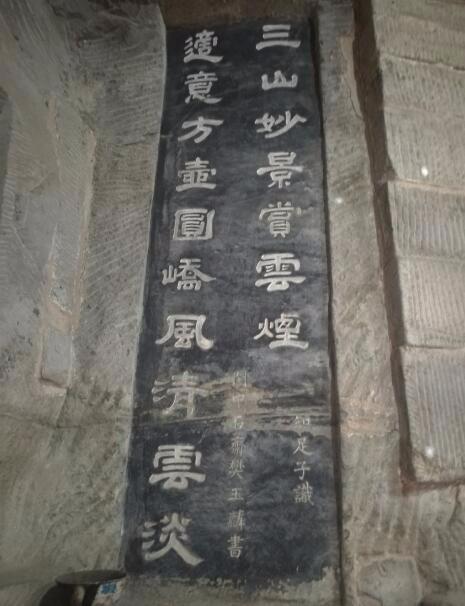 三山妙景賞雲煙
適意方壺圓嶠風清雲淡
知足子識
石齋樊玉麟書